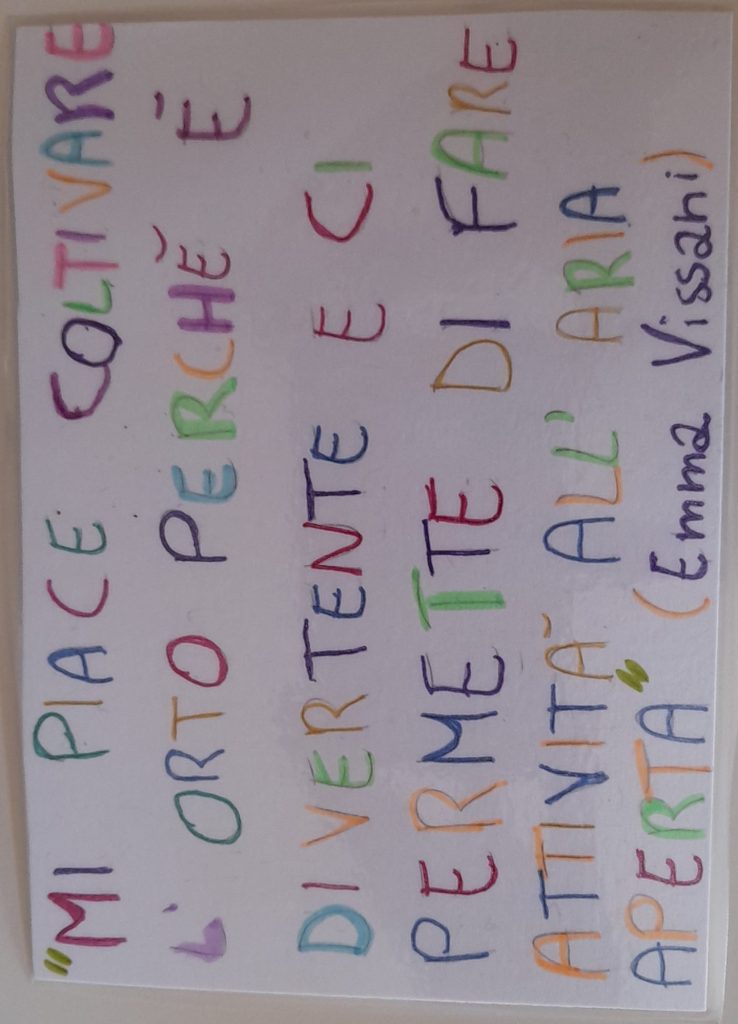 "MI PIACE COLTIVARE
L'ORTO PERCHĒ Ē
DIVERTENTE E CI
PERMETTE DI FARE
ATTIVITĀ ALL'ARIA
APERTA" (Emma Vissani)